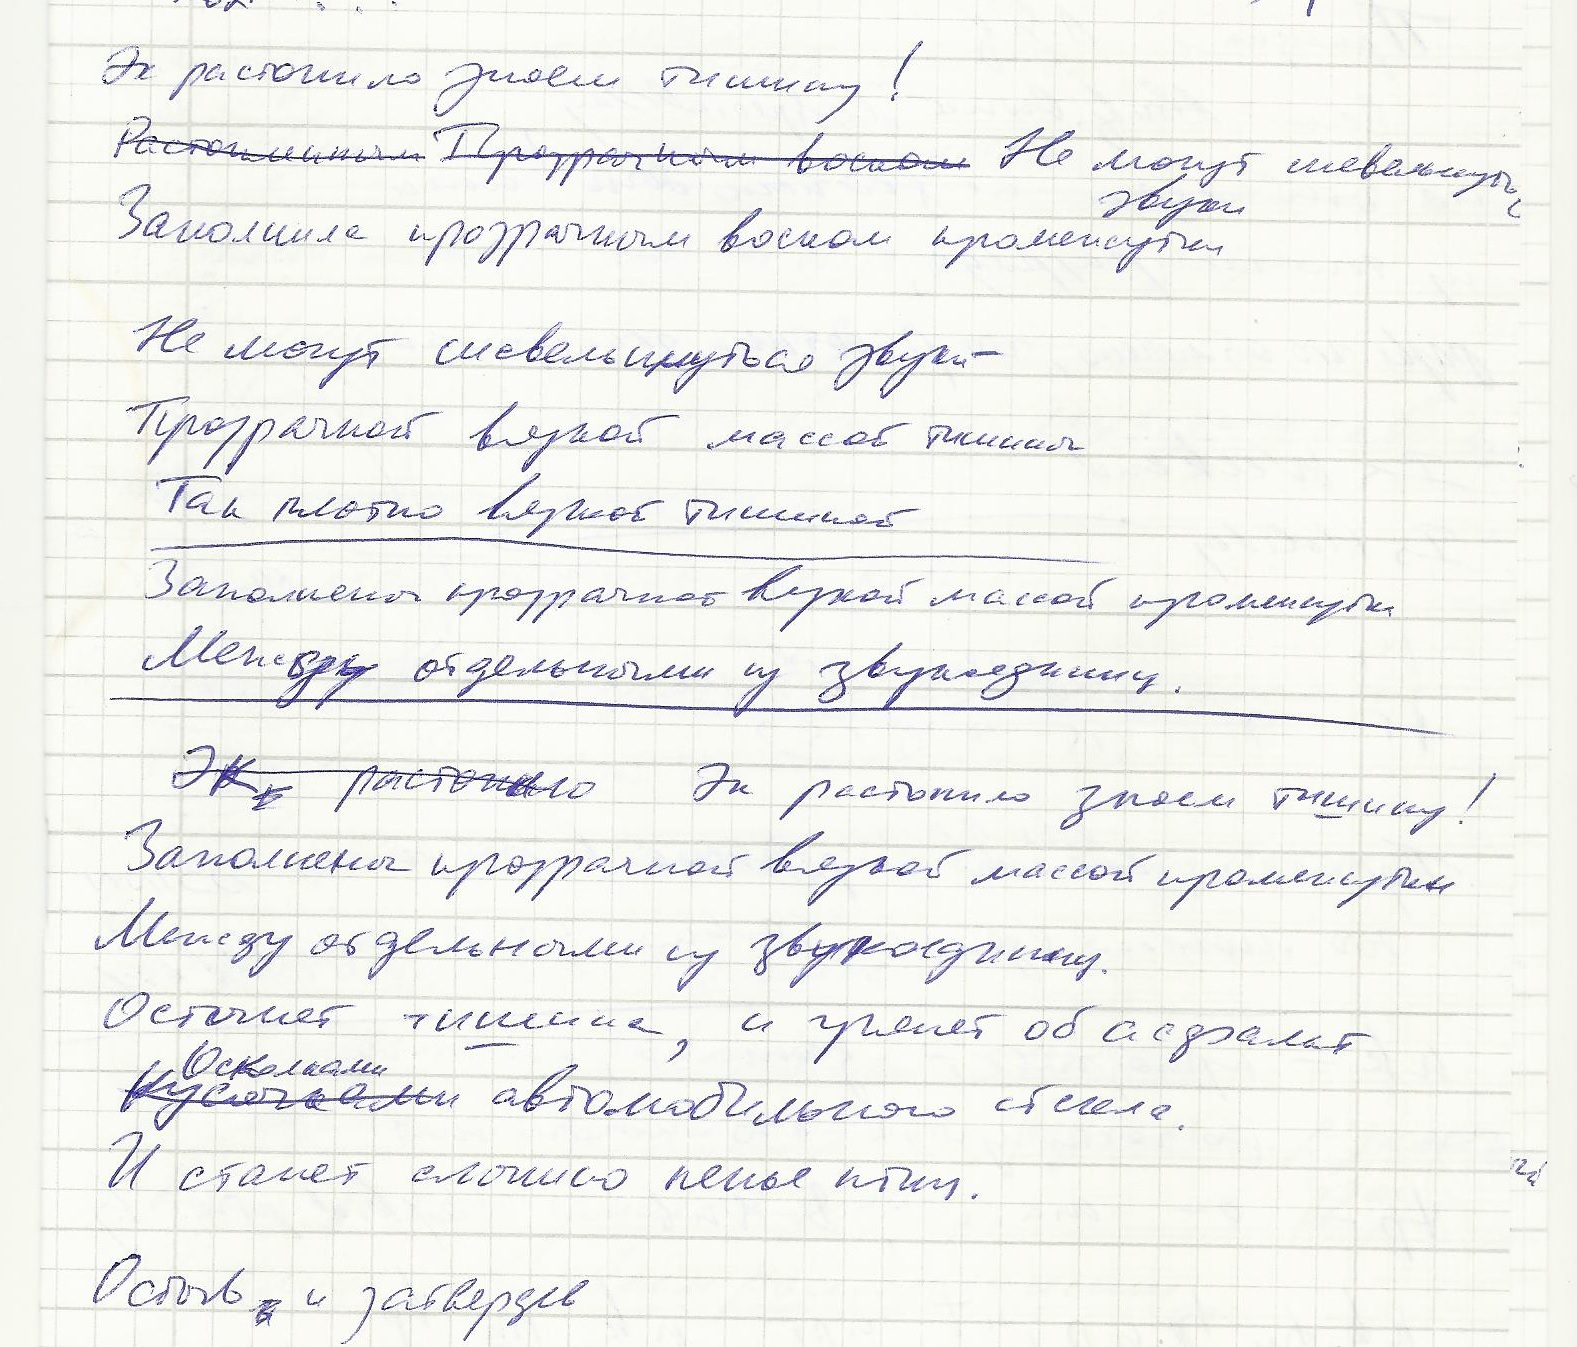 Эк растопило зноем тишину!
Растопленным Прозрачным воском Не могут шевельнуться
звуки
Заполнила прозрачным воском промежутки
Не могут шевельнуться звуки
Прозрачной вязкой массой тишины
Так плотно вязкой тишиной
Заполнены прозрачной вязкой массой промежутки
Между отдельными из звукоединиц.
Эк растопило Эк растопило зноем тишину!
Заполнены прозрачной вязкой массой промежутки
Между отдельными из звукоединиц.
Остынет тишина, и грянет об асфальт
Осколками
Кусочками автомобильного стекла.
И станет слышно пенье птиц.
Остыв и затвердев